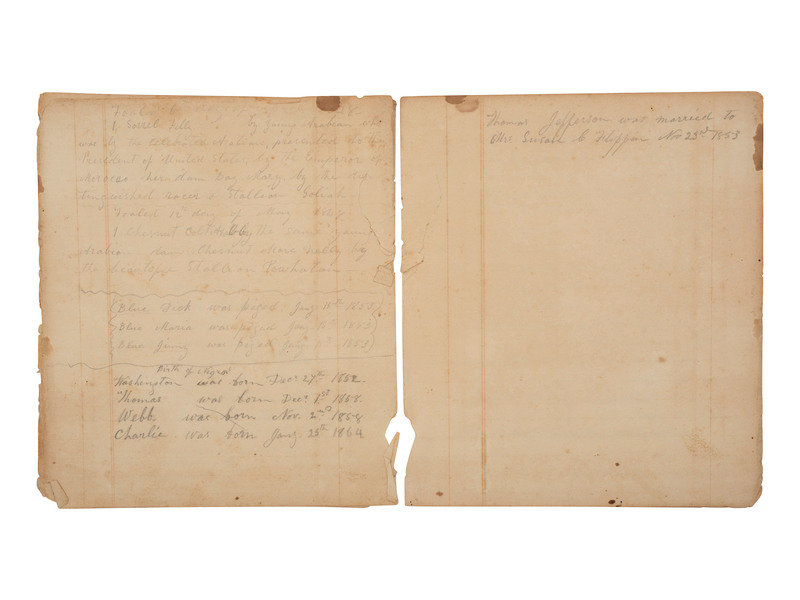 1 Sorrel filly by young Arabian who
was by the celebrated Arabian, presented to the
President of United States, by the Emperor of
Morocco her dam Bay Mary, by the dis-
tinguished racer & Stallion Goliah
Foaled 12th day of May
1 Chesnut Colt by the same young
Arabian dam Chesnut mare Kelly by
the beautiful Stallion Powhatan
Blue Dick was piged Jany 1853
Blue Maria was piged Jany 1853
Blue Jinny was piged Jany 1853
Birth of Negroes
Washington was born Decr 27th 1852.
Thomas was born Decr 1st 1858.
Webb was born Nov. 2nd 1858
Charlie was born Jany 25th 1864
Thomas Jefferson was married to
Mrs. Susan C Flippin Nov 23rd 1853